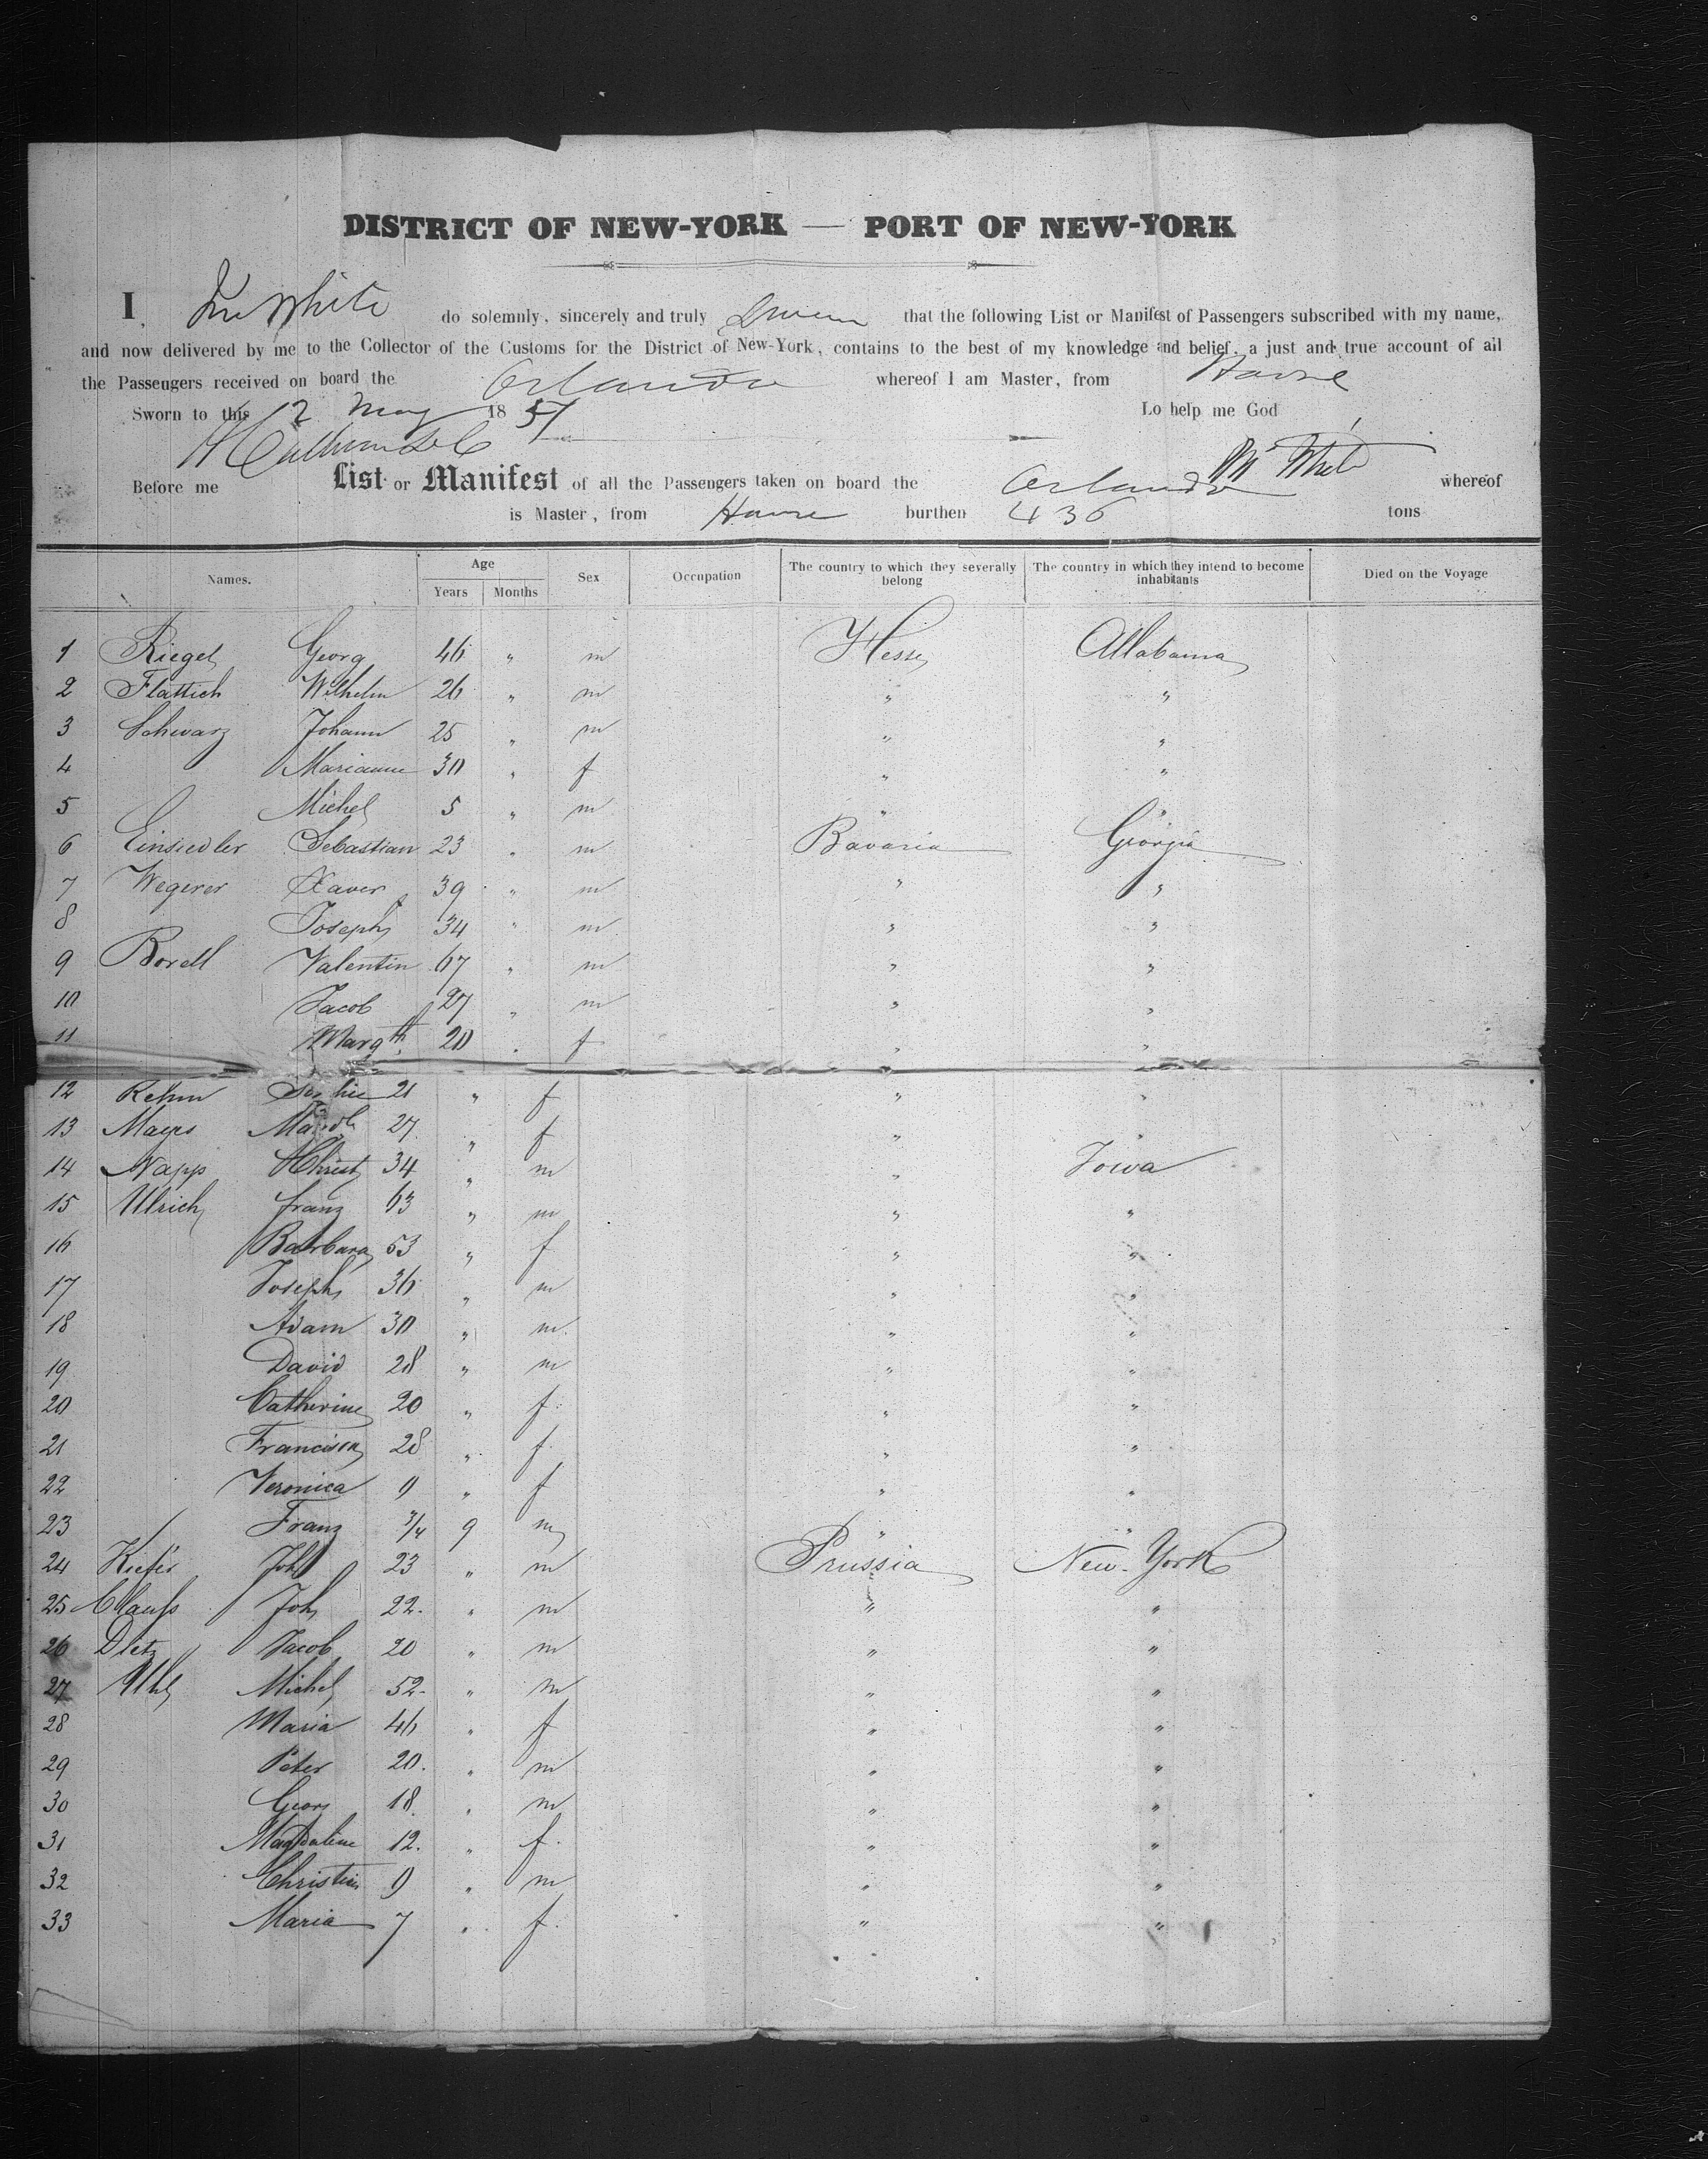 DISTRICT OF NEW-YORK — PORT OF NEW-YORK
I, Jno White do solemnly, sincerely and truly Swear that the following List or Manifest of Passengers subscribed with my name,
and now delivered by me to the Collector of the Customs for the District of New-York, contains to the best of my knowledge and belief, a just and true account of all
the Passengers received on board the Orlando whereof I am Master, from Havre
Sworn to this 2 May 1857 Lo help me God
White
Before me List or Manifest of all the Passengers taken on board the Orlando whereof
is Master, from Havre burthen 436 tons
Names. Age Years Months Sex Occupation The country to which they severally belong The country in which they intend to become inhabitants Died on the Voyage
1 Riegel Georg 46 " m Hesse Allabama
2 Flattich Wilhelm 26 " m " "
3 Schwarz Johann 25 " m " "
4 Marianne 30 " f " "
5 Michel 5 " m " "
6 Einsiedler Sebastian 23 " m Bavaria Giorgia
7 Wegerer Xaver 39 " m " "
8 Joseph 34 " m " "
9 Borell Valentin 67 " m " "
10 Jacob 27 " m " "
11 Margth 20 " f " "
12 Rehm Sophie 21 " f " "
13 Mayrs 27 " f " "
14 Napp Christ 34 " m " Iowa
15 Ulrich franz 63 " m " "
16 Barbara 53 " f " "
17 Joseph 36 " m " "
18 Adam 30 " m " "
19 David 28 " m " "
20 Catherine 20 " f " "
21 Francisca 28 " f " "
22 Veronica 9 " f " "
23 Franz 3/4 9 m " "
24 Kiefer Joh 23 " m Prussia New-York
25 Clauss Joh 22 " m " "
26 Dietz Jacob 20 " m " "
27 Uhl Michel 52 " m " "
28 Maria 46 " f " "
29 Peter 20 " m " "
30 Georg 18 " m " "
31 Magdaline 12 " f " "
32 Christian 9 " m " "
33 Maria 7 " f " "